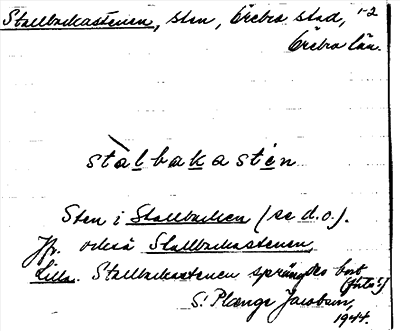 Stallbackastenen, sten, Örebro stad, 1-2
Örebro län.
stàlbakastén
Sten i Stallbacken (se d.o.).
Jfr också Stallbackastenen,
Lilla. Stallbackastenen sprängdes bort
S. Plænge Jacobson,
1944.